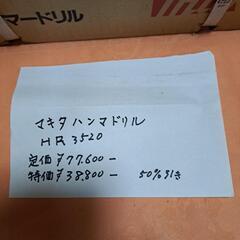 マードリル
マキタハンマドリル
HR3520
定価¥77,600-
特価¥38,800- 50%引き